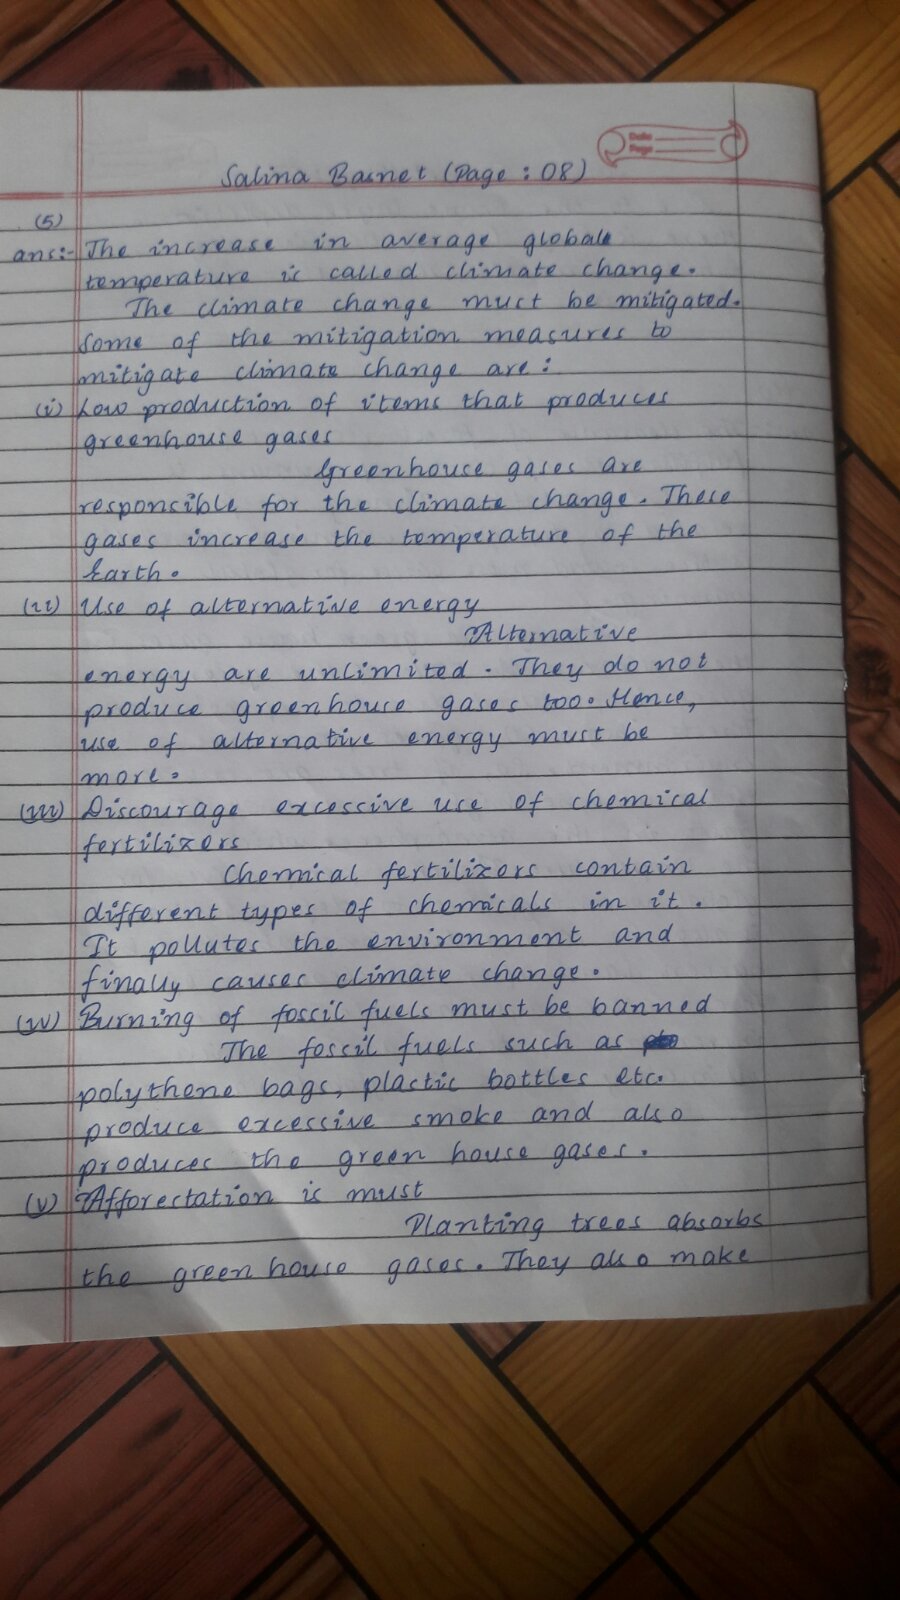 Date
Page
Salina Basnet (Page : 08)
(5)
ans:- The increase in average global
temperature is called climate change.
The climate change must be mitigated.
Some of the mitigation measures to
mitigate climate change are:
(i) Low production of items that produces
greenhouse gases
Greenhouse gases are
responsible for the climate change. These
gases increase the temperature of the
Earth.
(ii) Use of alternative energy
Alternative
energy are unlimited. They do not
produce greenhouse gases too. Hence,
use of alternative energy must be
more.
(iii) Discourage excessive use of chemical
fertilizers
Chemical fertilizers contain
different types of chemicals in it.
It pollutes the environment and
finally causes climate change.
(iv) Burning of fossil fuels must be banned
The fossil fuels such as
polythene bags, plastic bottles etc.
produce excessive smoke and also
produces the green house gases.
(v) Afforestation is must
Planting trees absorbs
the green house gases. They also make